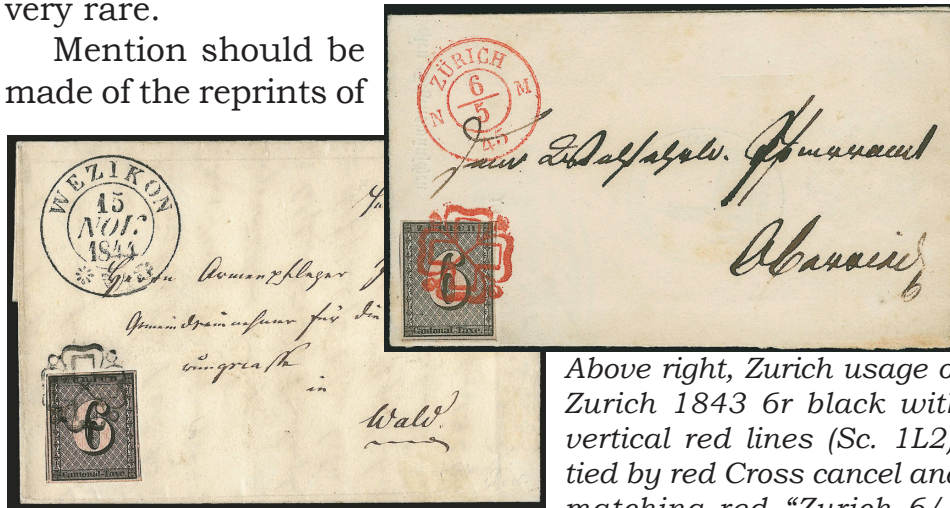 very rare.
Mention should be
made of the reprints of
ZÜRICH
6
5
45
N
M
Oberried
ZÜRICH
6
Cantonal-Taxe.
WEZIKON
15
NOV.
1844
Armenpfleger
für die
in
Wald.
ZÜRICH
6
Cantonal-Taxe.
Above right, Zurich usage o
Zurich 1843 6r black with
vertical red lines (Sc. 1L2)
tied by red Cross cancel and
matching red “Zurich 6/